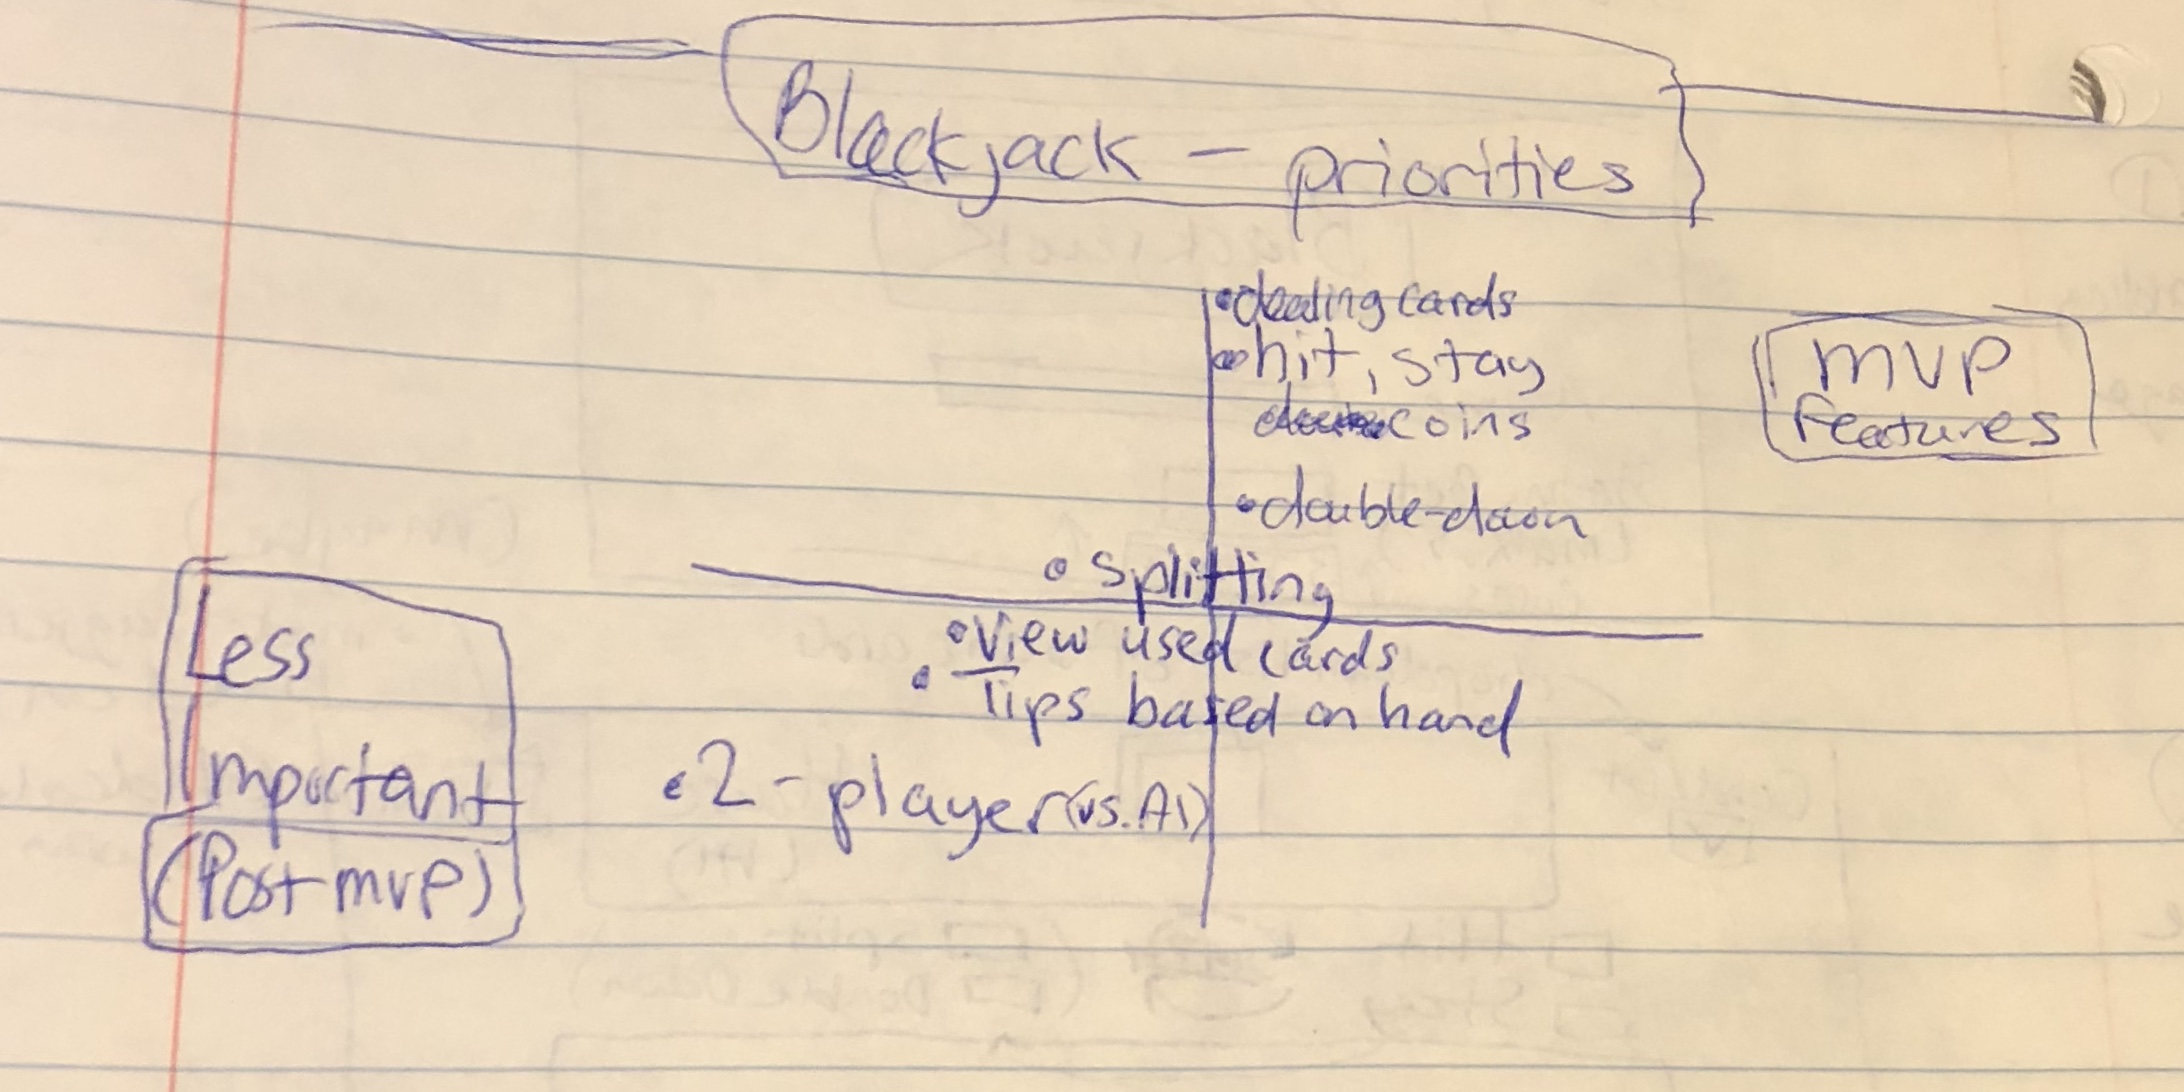 Blackjack - priorities
• dealing cards
• hit, stay
coins
MVP
Features
• double-down
• Splitting
• View used cards
• Tips based on hand
• 2-player (vs. AI)
Less
Important
(Post mvp)